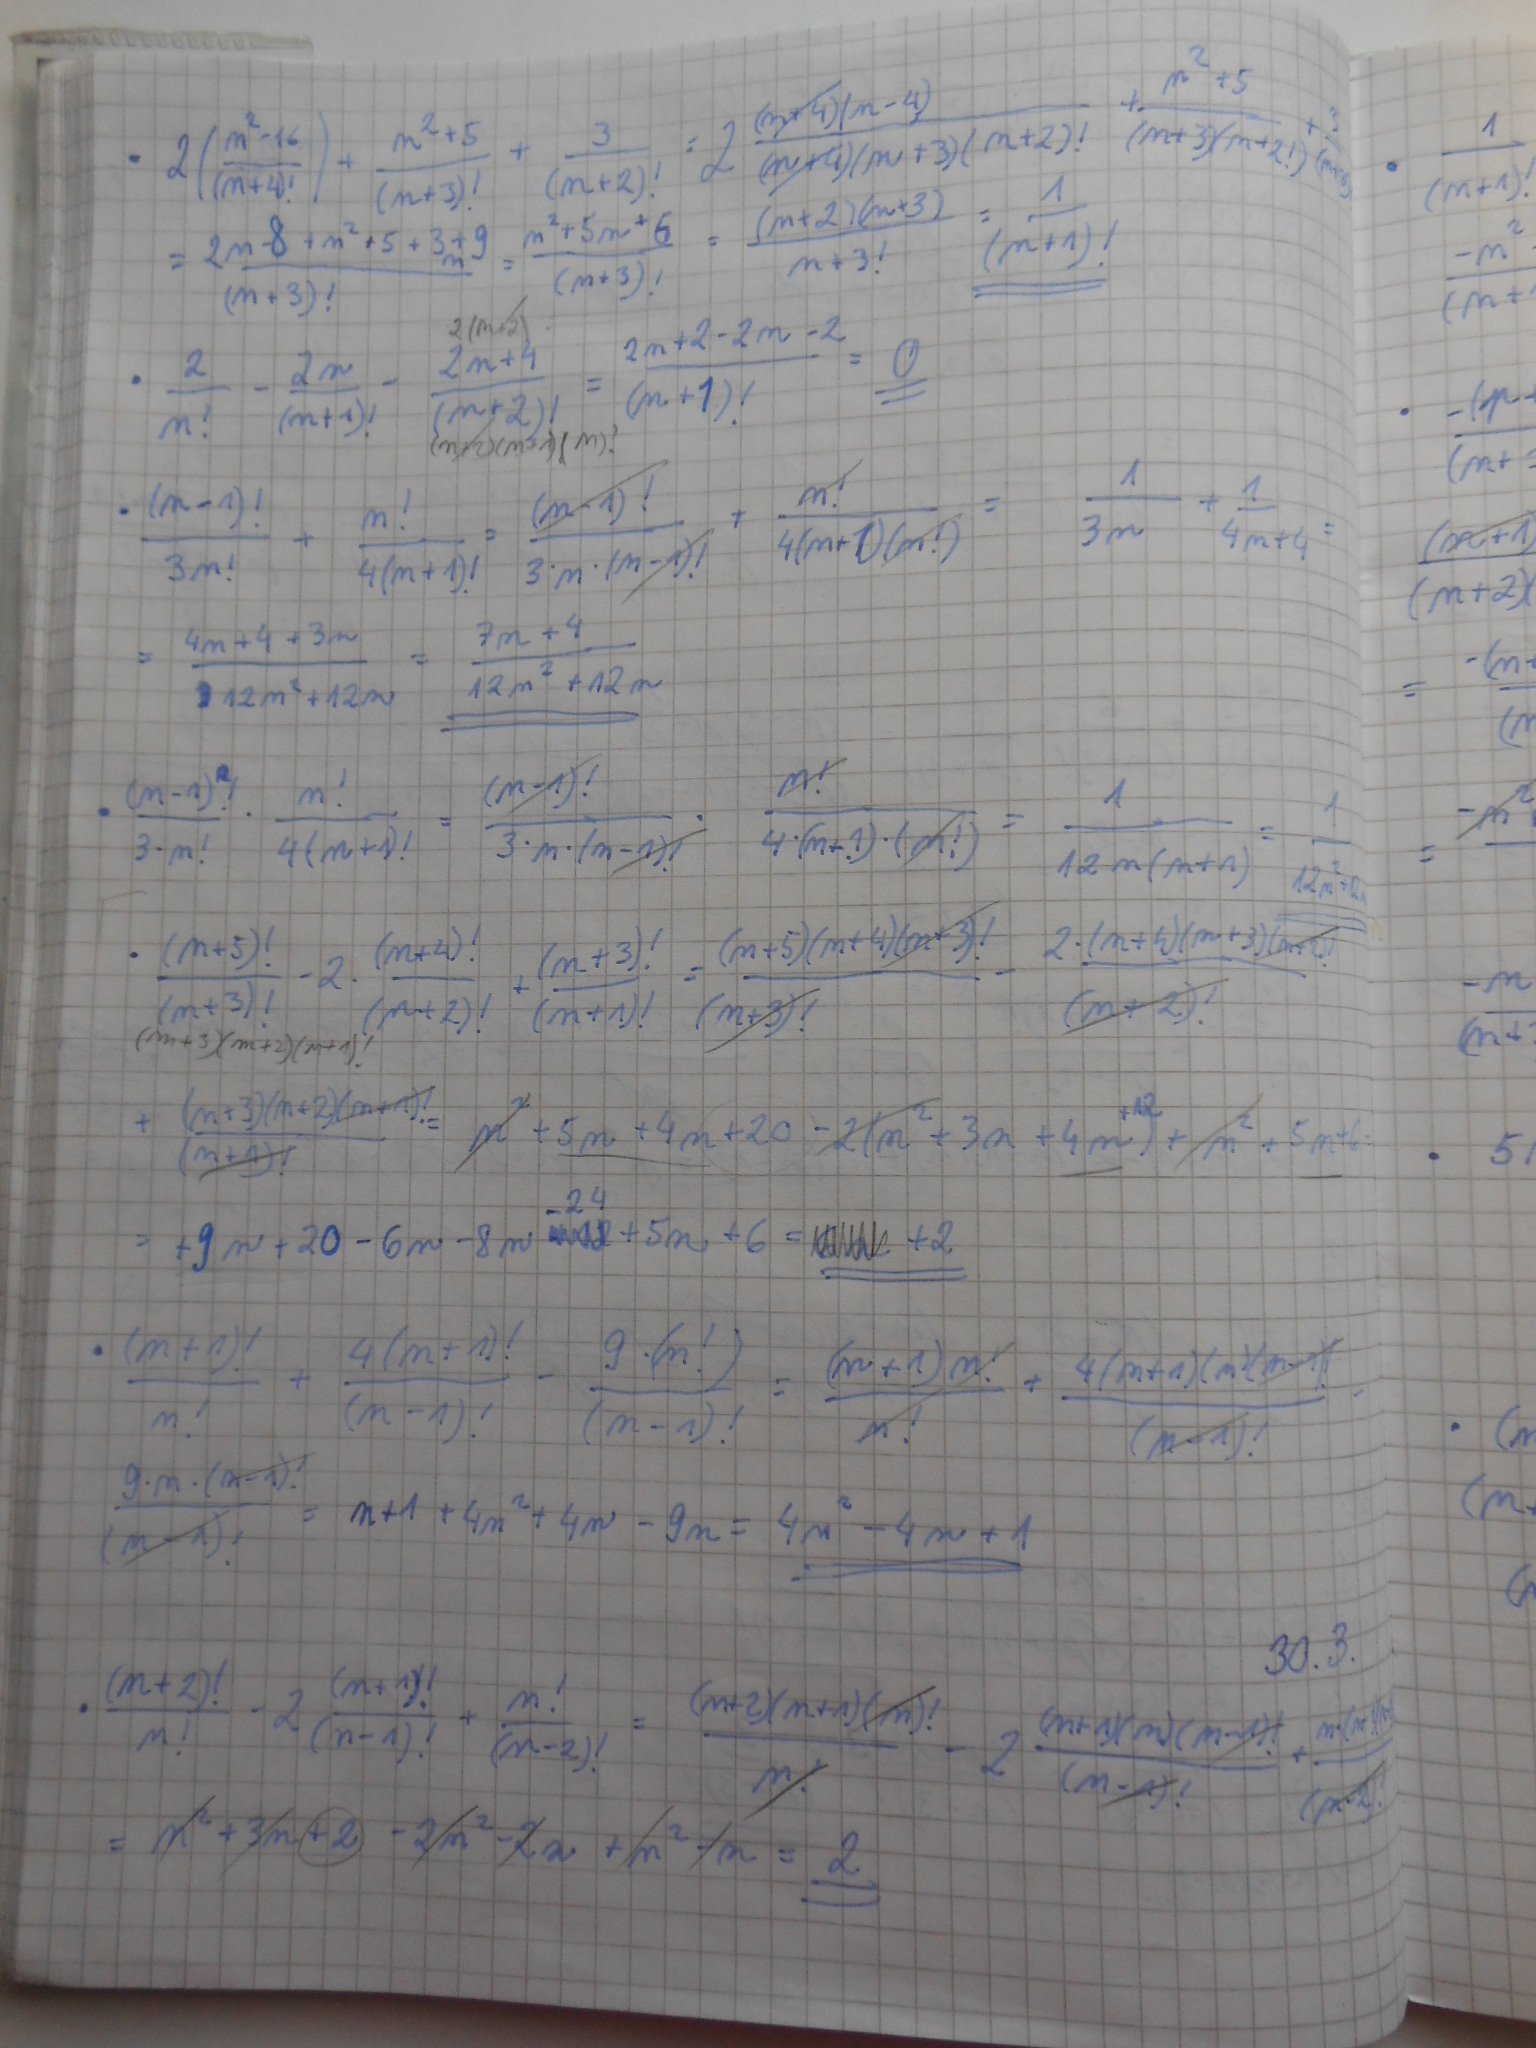 • 2((n²-16)/(n+4)!) + (n²+5)/(n+3)! + 3/(n+2)! = 2 (n+4)(n-4)/(n+4)(n+3)(n+2)! + n²+5/(n+3)(n+2!) + 3/
= 2n-8+n²+5+3n+9/(n+3)! = n²+5n+6/(n+3)! = (n+2)(n+3)/n+3! = 1/(n+1)!
2(n+2)
• 2/n! - 2n/(n+1)! - 2n+4/(n+2)! = 2n+2-2n-2/(n+1)! = 0
(n+2)(n+1)(n)!
• (n-1)!/3n! + n!/4(n+1)! = (n-1)!/3·n·(n-1)! + n!/4(n+1)(n!) = 1/3n + 1/4n+4 =
= 4n+4+3n/12n²+12n = 7n+4/12n²+12n
• (n-1)!/3·n! · n!/4(n+1)! = (n-1)!/3·n·(n-1)! · n!/4·(n+1)·(n!) = 1/12n(n+1) = 1/12n²+12n
• (n+5)!/(n+3)! - 2·(n+4)!/(n+2)! + (n+3)!/(n+1)! = (n+5)(n+4)(n+3)!/(n+3)! - 2·(n+4)(n+3)(n+2)!/(n+2)!
(n+3)(n+2)(n+1)!
+ (n+3)(n+2)(n+1)!/(n+1)! = n²+5n+4n+20-2(n²+3n+4n+12)+n²+5n+6=
= +9n+20-6n-8n-24+5n+6 = +2
• (n+1)!/n! + 4(n+1)!/(n-1)! - 9·(n!)/(n-1)! = (n+1)n!/n! + 4(n+1)(n)(n-1)!/(n-1)! -
9·n·(n-1)!/(n-1)! = n+1+4n²+4n-9n = 4n²-4n+1
30.3.
• (n+2)!/n! - 2 (n+1)!/(n-1)! + n!/(n-2)! = (n+2)(n+1)(n)!/n! - 2 (n+1)(n)(n-1)!/(n-1)! + /(n-2)!
= n²+3n+2-2n²-2n+n²-n = 2
1/(n+1)!
-n²
=
=
• 51